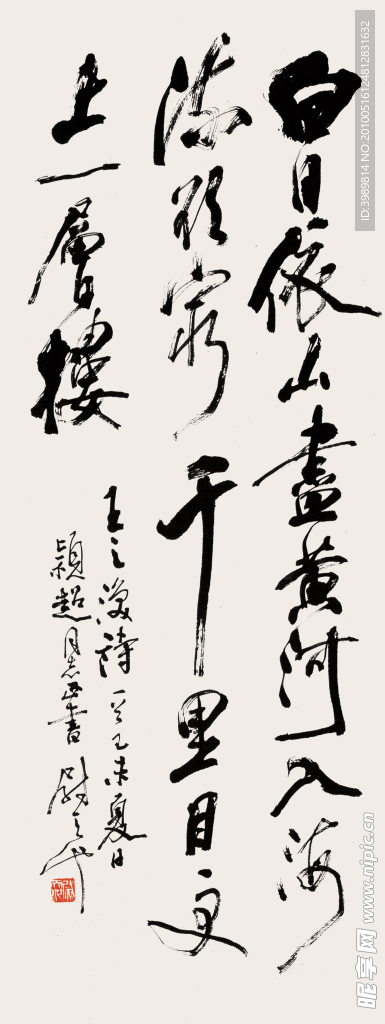 白日依山盡黃河入海
流欲窮千里目更
上一層樓
王之渙詩一首 未夏日
穎超同志正書 尉天池
ID:3989814 NO:20100516124812831632
昵享网 www.nipic.cn